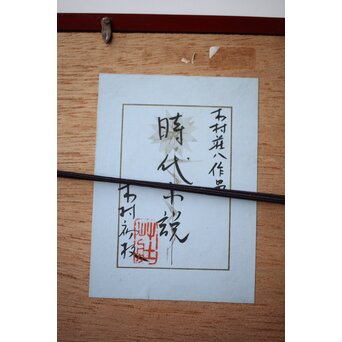 木村荘八作品
時代小説
木村